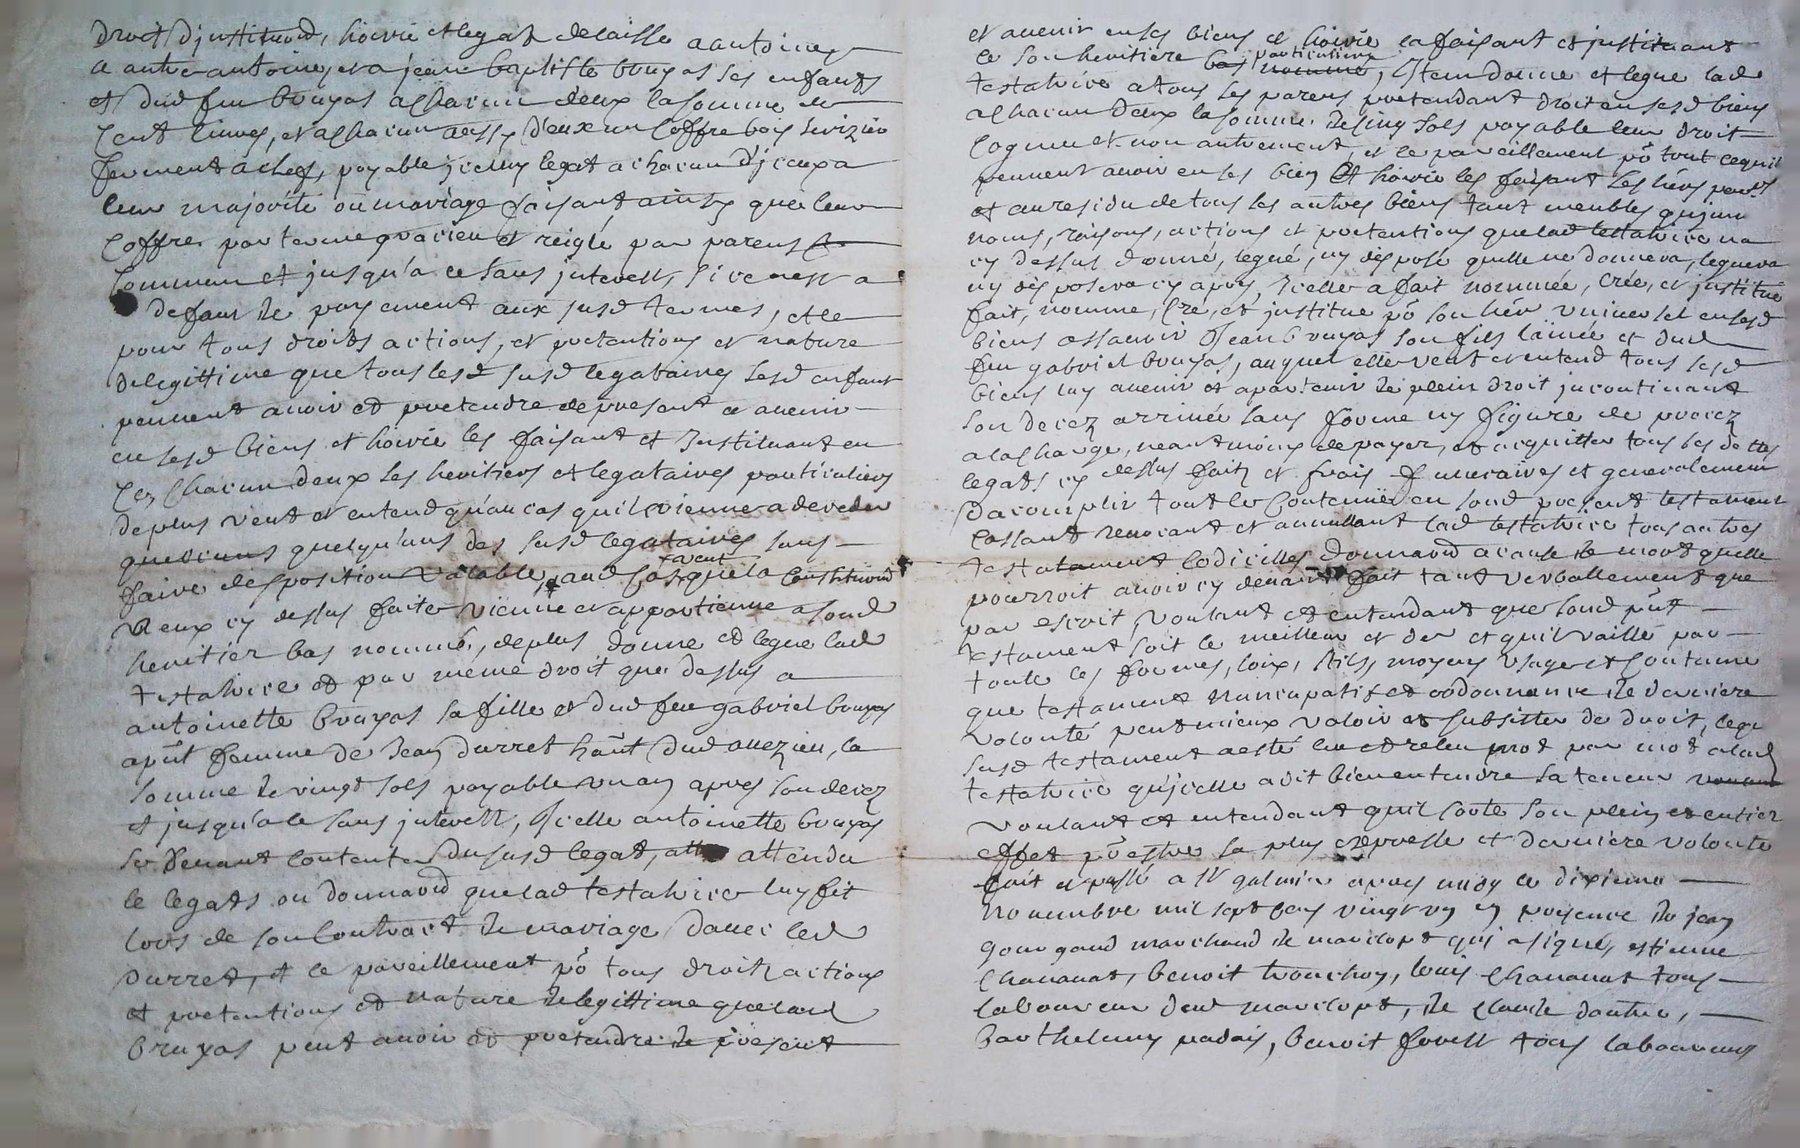 Droit d'jnstituõn, hoirie et legat delaisse a antoine
a autre antoine, et a jean baptiste bruyas ses enfants
et dud feu bruyas a chacun deux la somme de
Cent livres, et a chacun aussy d'eux un Coffre bois serizier
fermant a clef, payable jceluy legat a chacun d'jceux a
leur majorité ou mariage faisant ainsy que leur
Coffre par terme gracieu et reiglé par parens
Commun et jusqu'a ce sans jnterest, si ce nest a
defaut de payement aux susd termes, et ce
pour tous droits actions, et pretentions et nature
de legittime que tous lesd susd legataires sesd enfant
peuvent avoir et pretendre de present a avenir
en sesd biens et hoirie les faisant et Instituant en
ce, Chacun deux ses heritiers et legataires particuliers
de plus veut et entend qu'au cas qu'il vienne a deceder
quelqu'uns des susd legataires sans
faire desposition valable, aud Cas que la Constitution
deux cy dessus faite vienne et appartienne a sond
heritier bas nommé, de plus donne et legue lad
testatrice et par meme droit que dessus a
antoinette bruyas sa fille et dud feu gabriel bruyas
apñt femme de Jean durret hãnt dud avezieu, la
somme de vingt sols payable un an apres son decez
et jusqu'a ce sans jnterest, Jcelle antoinette bruyas
se tenant contente du susd legat, attendu
le legats ou donnaõn que lad testatrice luy fit
lors de son Contract de mariage d'avec led
durret, et ce pareillement põ tous droits actions
et pretentions et nature de legittime que lad
bruyas peut avoir et pretendre de present
et avenir en ses biens et hoirie la faisant et jnstituant
ce son heritiere particuliere, Item donne et legue lad
testatrice a tous ses parens pretendant droit en sesd biens
a chacun deux la somme de cinq sols payable leur droit
Cognu et non autrement, et ce pareillement põ tout ce quil
peuvent avoir en ses bien et hoirie les faisant ses hers
et au residu de tous ses autres biens tant meubles qu'jm
noms, raisons, actions et pretentions que lad testatrice na
cy dessus donné, legué, ny disposé quelle ne donnera, leguera
ny disposera cy apres, Jcelle a fait nommée, Crée, et jnstitué
fait, nomme, Crée, et jnstitue põ son her universel en sesd
biens assavoir Jean bruyas son fils lainé et dud
feu gabriel bruyas, auquel elle veut et entend tous sesd
biens luy avenir et apartenir de plein droit jncontinant
son decez arrivée sans forme ny figure de procez
a la charge neantmoins de payer, et acquitter tous ses dettes
legats cy dessus faits et frais funeraires et generalement
d'acomplir tout le Contenu en sond present testament
Cassant revocant et annullant lad testatrice tous autres
testament Codicilles donnaõn a cause de mort quelle
pourroit avoir cy devant fait tant verballement que
par escrit, voulant et entendant que sond pñt
testament soit le meilleur et der et quil vaille par
toute les formes, loix, stils, moyens usages et Coutume
que testament nuncupatif et ordonnance de derniere
volonté peut mieux valoir et subsister de droit, lequ
susd testament a esté lu et relu mot par mot a lad
testatrice qu'jcelle a dit bien entendre sa teneur
voulant et entendant quil sorte son plein et entier
effet põ estre sa plus expresse et derniere volonte
fait et passé a St galmier apres midy ce dixieme
novembre mil sept cens vingt un en presence de jean
gourgaud marchand de marclopt qui a signé, estienne
Chavanat, benoit tronchon, louis Chavanat tous
laboureur dud marclopt, de Claude
Barthelemy padais, benoit forest tous laboureurs